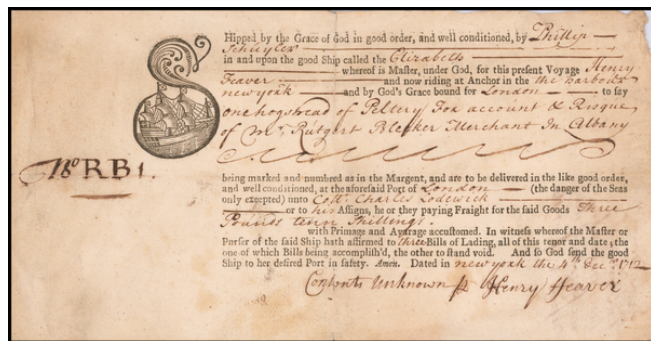 SHipped by the Grace of God in good order, and well conditioned, by Phillip
Schuyler
in and upon the good Ship called the Elizabeth
whereof is Master, under God, for this present Voyage Henry
Feaver and now riding at Anchor in the the harbour
newyork and by God's Grace bound for London to say
one hogshead of Peltery For account & Risque
of Mr. Rutgert Bleeker Merchant In Albany
No RB1.
being marked and numbred as in the Margent, and are to be delivered in the like good order,
and well conditioned, at the aforesaid Port of London (the danger of the Seas
only excepted) unto Coll. Charles Lodwick
or to his Assigns, he or they paying Fraight for the said Goods Three
Pounds tenn Shillings.
with Primage and Avarage accustomed. In witness whereof the Master or
Purser of the said Ship hath affirmed to three Bills of Lading, all of this tenor and date; the
one of which Bills being accomplish'd, the other to stand void. And so God send the good
Ship to her desired Port in safety. Amen. Dated in newyork the 4th Decr. 1712
Contents Unknown Henry Feaver